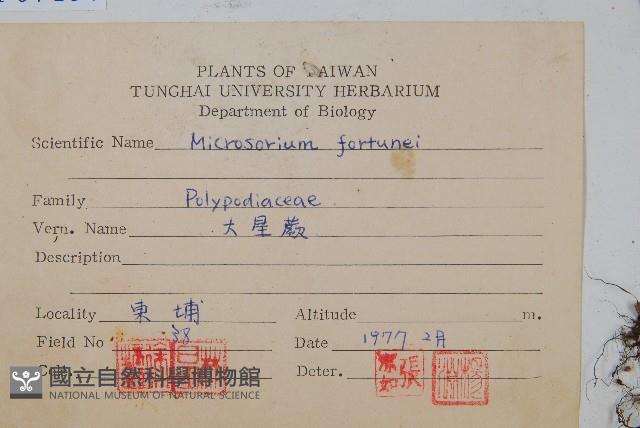 PLANTS OF TAIWAN
TUNGHAI UNIVERSITY HERBARIUM
Department of Biology
Scientific Name Microsorium fortunei
Family Polypodiaceae
Vern. Name 大星蕨
Description
Locality 東埔 Altitude m.
Field No 38 Date 1977 2月
Deter. 張
國立自然科學博物館
NATIONAL MUSEUM OF NATURAL SCIENCE